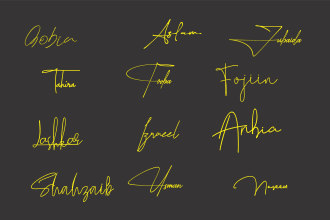 Gobia Aslam Zubaida
Tahira Tooba Fojiin
Lashkor Izraeel Anbia
Shahzaib Usman Naseem